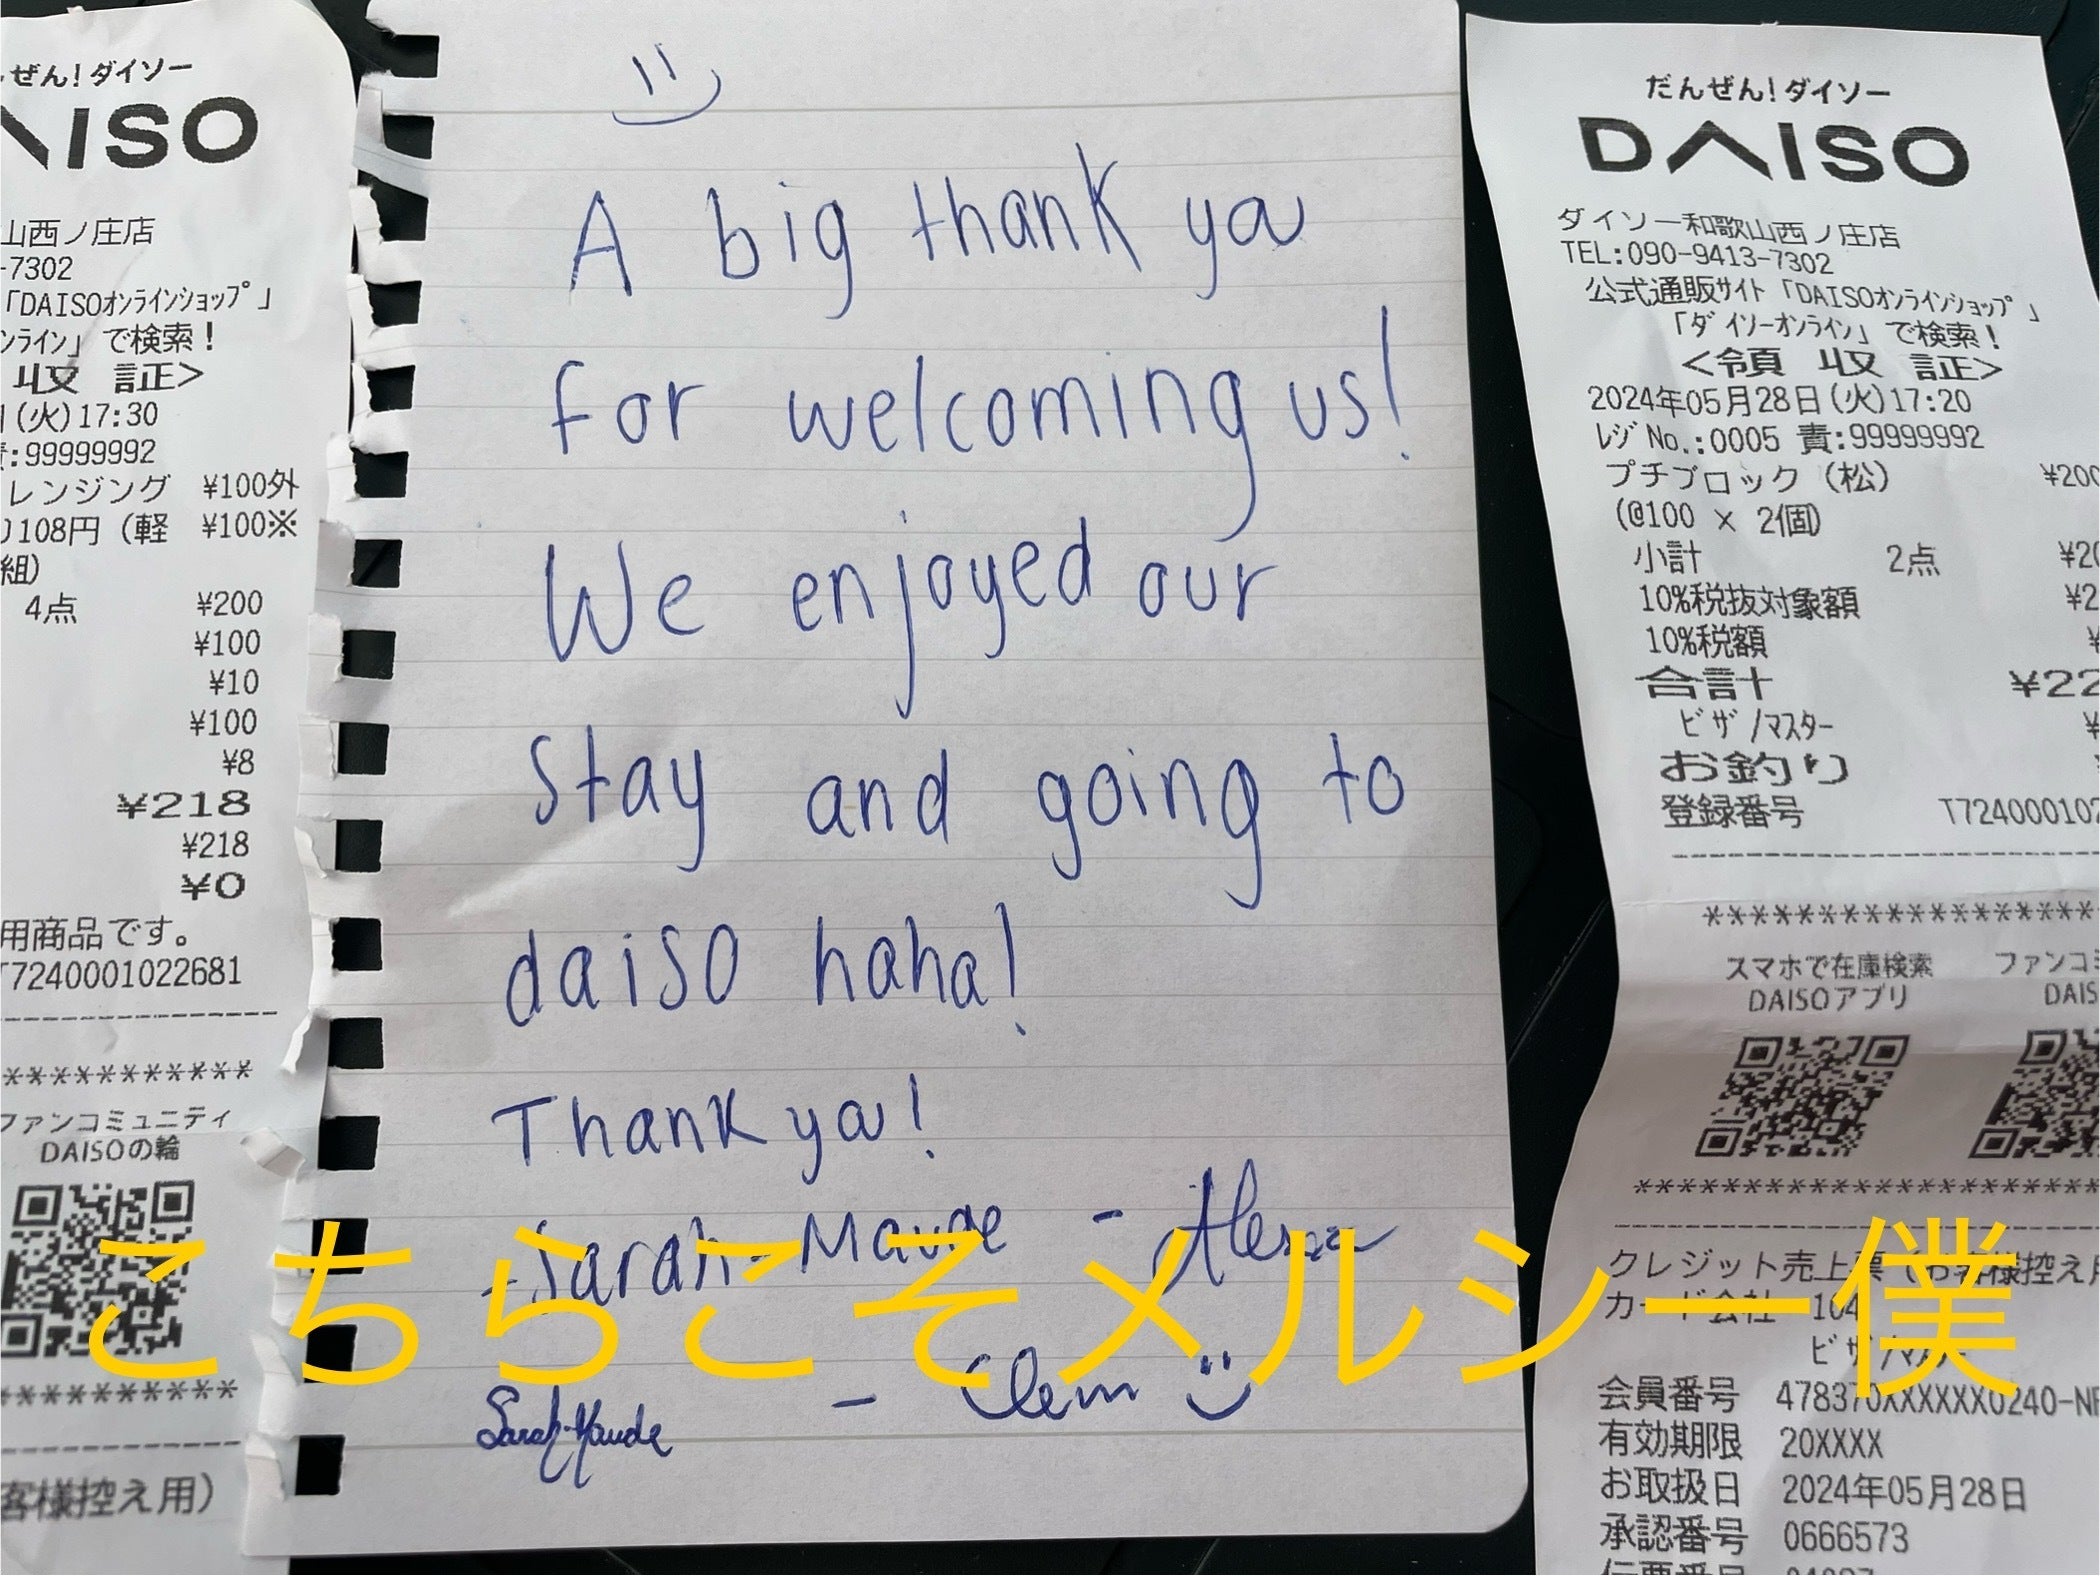 ぜん！ダイソー
DAISO
山西ノ庄店
-7302
「DAISOオンラインショップ」
ンライン」で検索！
収 証>
(火)17:30
:99999992
レンジング ¥100外
108円（軽 ¥100※
組)
4点 ¥200
¥100
¥10
¥100
¥8
¥218
¥218
¥0
用商品です。
T7240001022681
***********
ファンコミュニティ
DAISOの輪
***********
客様控え用）
A big thank ya
for welcoming us!
We enjoyed our
stay and going to
daiso haha!
Thank ya!
-Sarah-Maude - Alexa
Sarah-Maude - Clem
だんぜん！ダイソー
DAISO
ダイソー和歌山西ノ庄店
TEL:090-9413-7302
公式通販サイト「DAISOオンラインショップ」
「ダイソーオンライン」で検索！
<領 収 証>
2024年05月28日(火)17:20
レジNo.:0005 責:99999992
プチブロック（松） ¥200
(@100 × 2個)
小計 2点 ¥20
10%税抜対象額 ¥2
10%税額 ¥
合計 ¥22
ビザ/マスター ¥
お釣り ¥
登録番号 T724000102
******************
スマホで在庫検索 ファンコミ
DAISOアプリ DAIS
******************
クレジット売上票（お客様控え用
カード会社 104
ビザ/マスター
会員番号 478370XXXXXX0240-NF
有効期限 20XXXX
お取扱日 2024年05月28日
承認番号 0666573
伝票番号
こちらこそメルシー僕